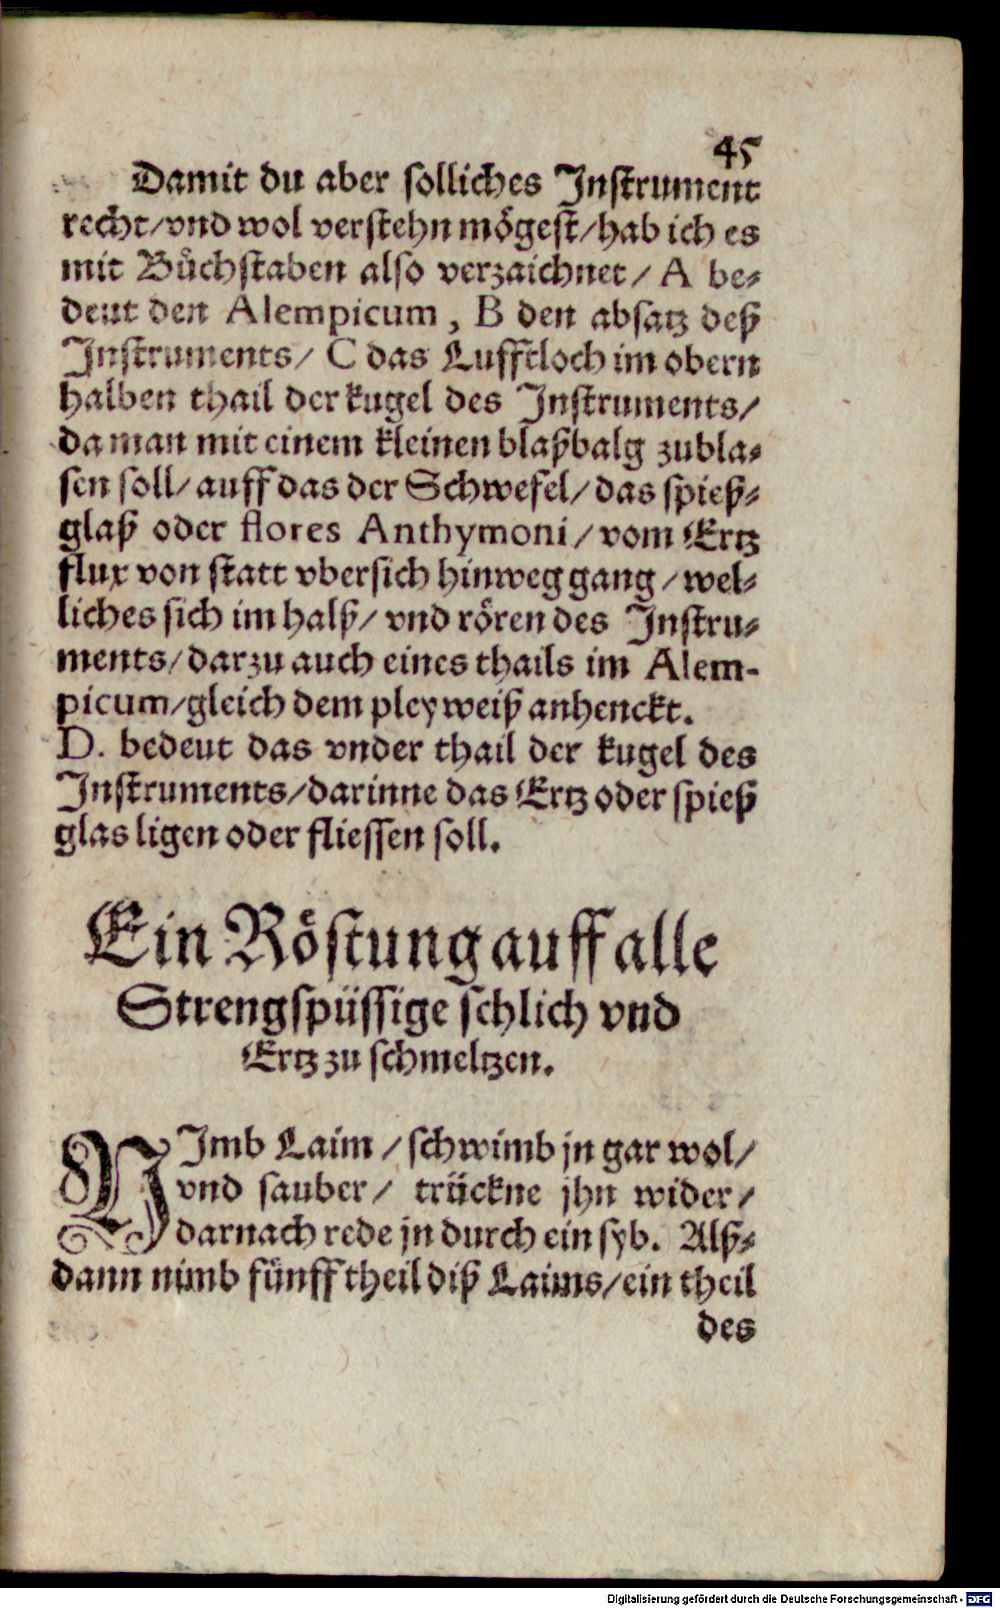 45
Damit du aber solliches Instrument
recht/vnd wol verstehn mögest/hab ich es
mit Bůchstaben also verzaichnet/ A be-
deut den Alempicum, B den absatz deß
Instruments/ C das Lufftloch im obern
halben thail der kugel des Instruments/
da man mit einem kleinen blaßbalg zubla-
sen soll/auff das der Schwefel/das spieß-
glaß oder flores Anthymoni/vom Ertz
flux von statt vbersich hinweg gang/wel-
liches sich im halß/vnd rören des Instru-
ments/darzu auch eines thails im Alem-
picum/gleich dem pleyweiß anhenckt.
D. bedeut das vnder thail der kugel des
Instruments/darinne das Ertz oder spieß
glas ligen oder fliessen soll.
Ein Röstung auff alle
Strengspüssige schlich vnd
Ertz zu schmeltzen.
NImb Laim/schwimb jn gar wol/
vnd sauber/ trückne jhn wider/
darnach rede jn durch ein syb. Alß-
dann nimb fünff theil diß Laims/ein theil
des
Digitalisierung gefördert durch die Deutsche Forschungsgemeinschaft - DFG